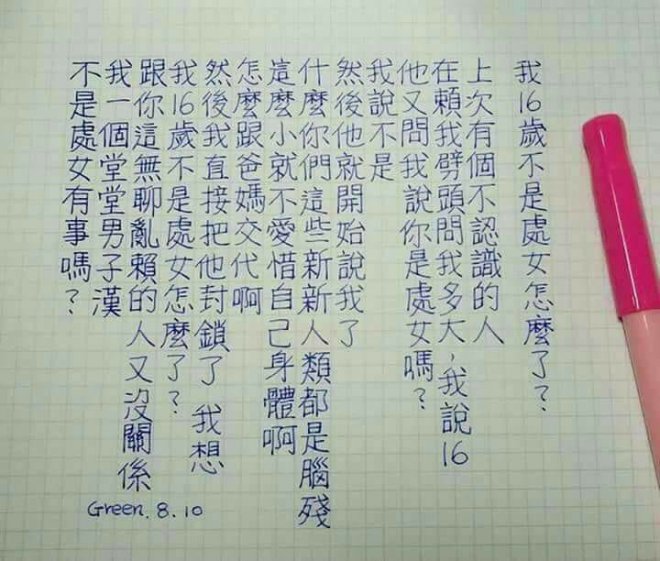 我16歲不是處女怎麼了？
上次有個不認識的人
在賴我劈頭問我多大，我說16
他又問我說你是處女嗎？
我說不是
然後他就開始說我了
什麼你們這些新新人類都是腦殘
這麼小就不愛惜自己身體啊
怎麼跟爸媽交代啊
然後我直接把他封鎖了 我想
我16歲不是處女怎麼了？
跟你這無聊亂賴的人又沒關係
我一個堂堂男子漢
不是處女有事嗎？
Green.8.10